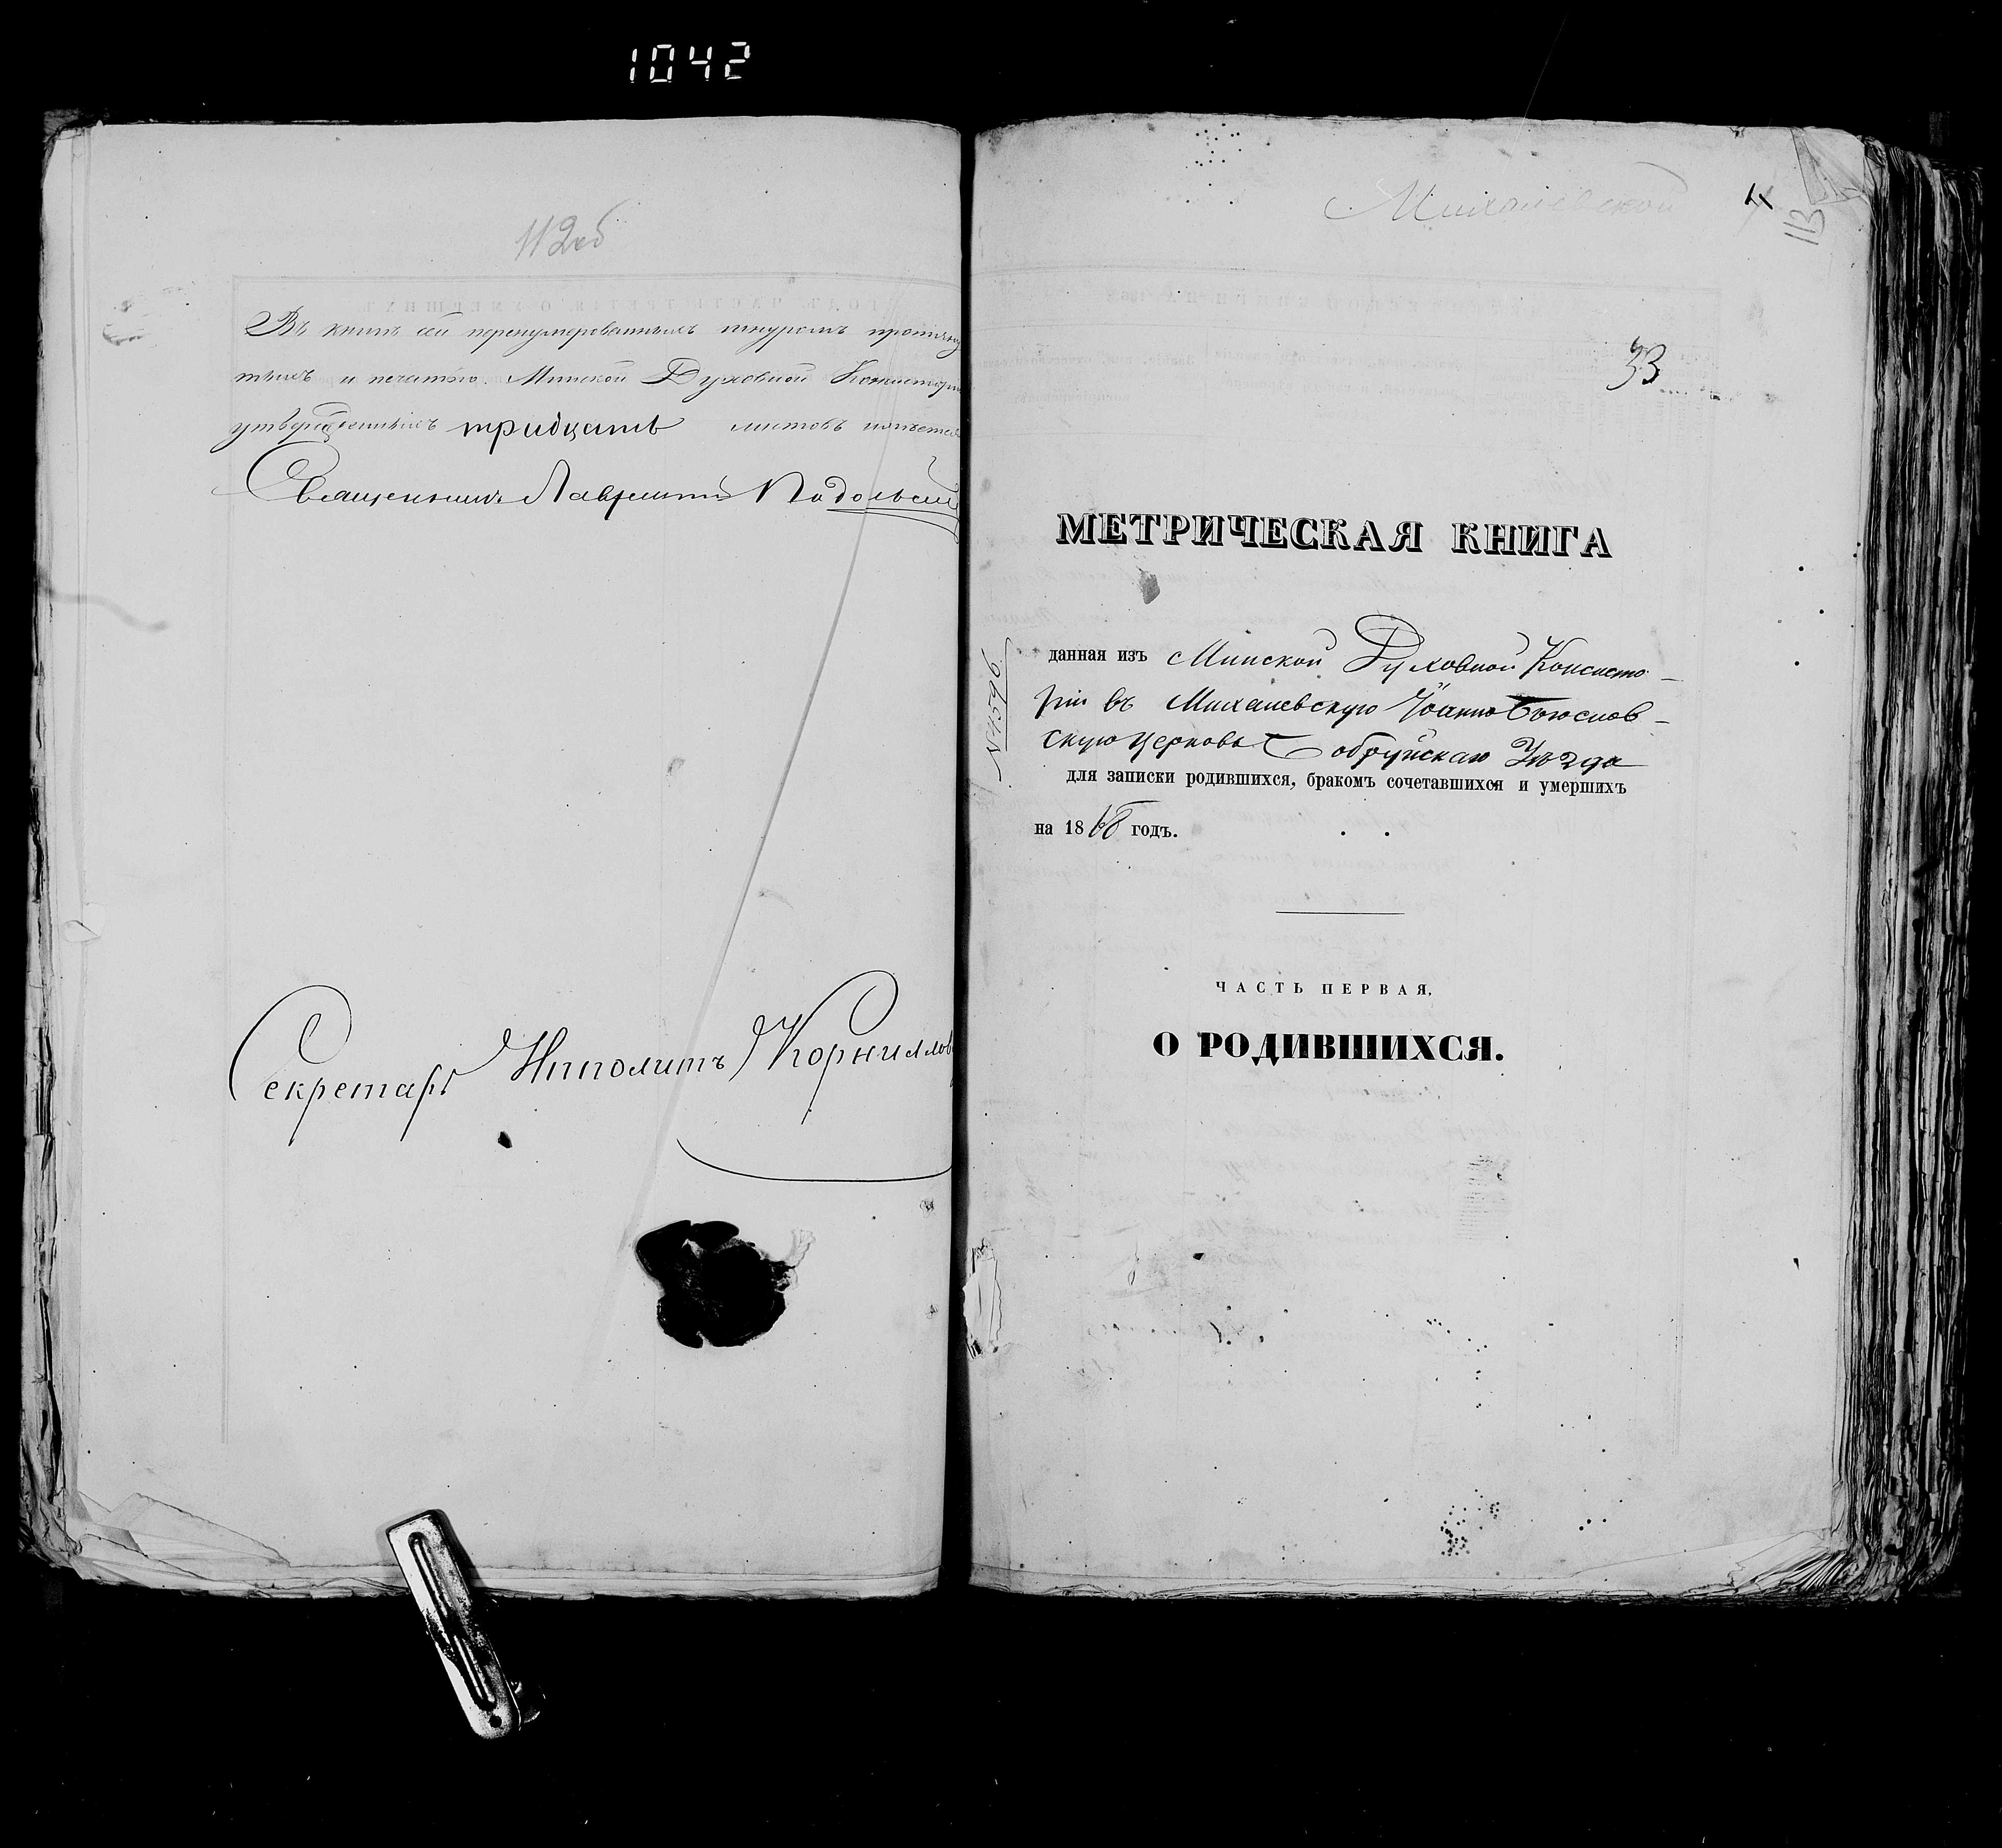 1042
112об
Въ книгѣ сей перенумерованныхъ шнуромъ протяну
тыхъ и печатью Минской Духовной Консисторіи
утвержденныхъ тридцать листовъ имѣется
Священникъ Лаврентій Подольскій
Секретарь Ипполитъ Корнилов
Михалевской
113
33
МЕТРИЧЕСКАЯ КНИГА
№ 4596
данная изъ Минской Духовной Консисто-
ріи въ Михалевскую Іоанно Богослов-
скую церковь Бобруйскаго Уѣзда
для записки родившихся, бракомъ сочетавшихся и умершихъ
на 1868 годъ.
ЧАСТЬ ПЕРВАЯ,
О РОДИВШИХСЯ.